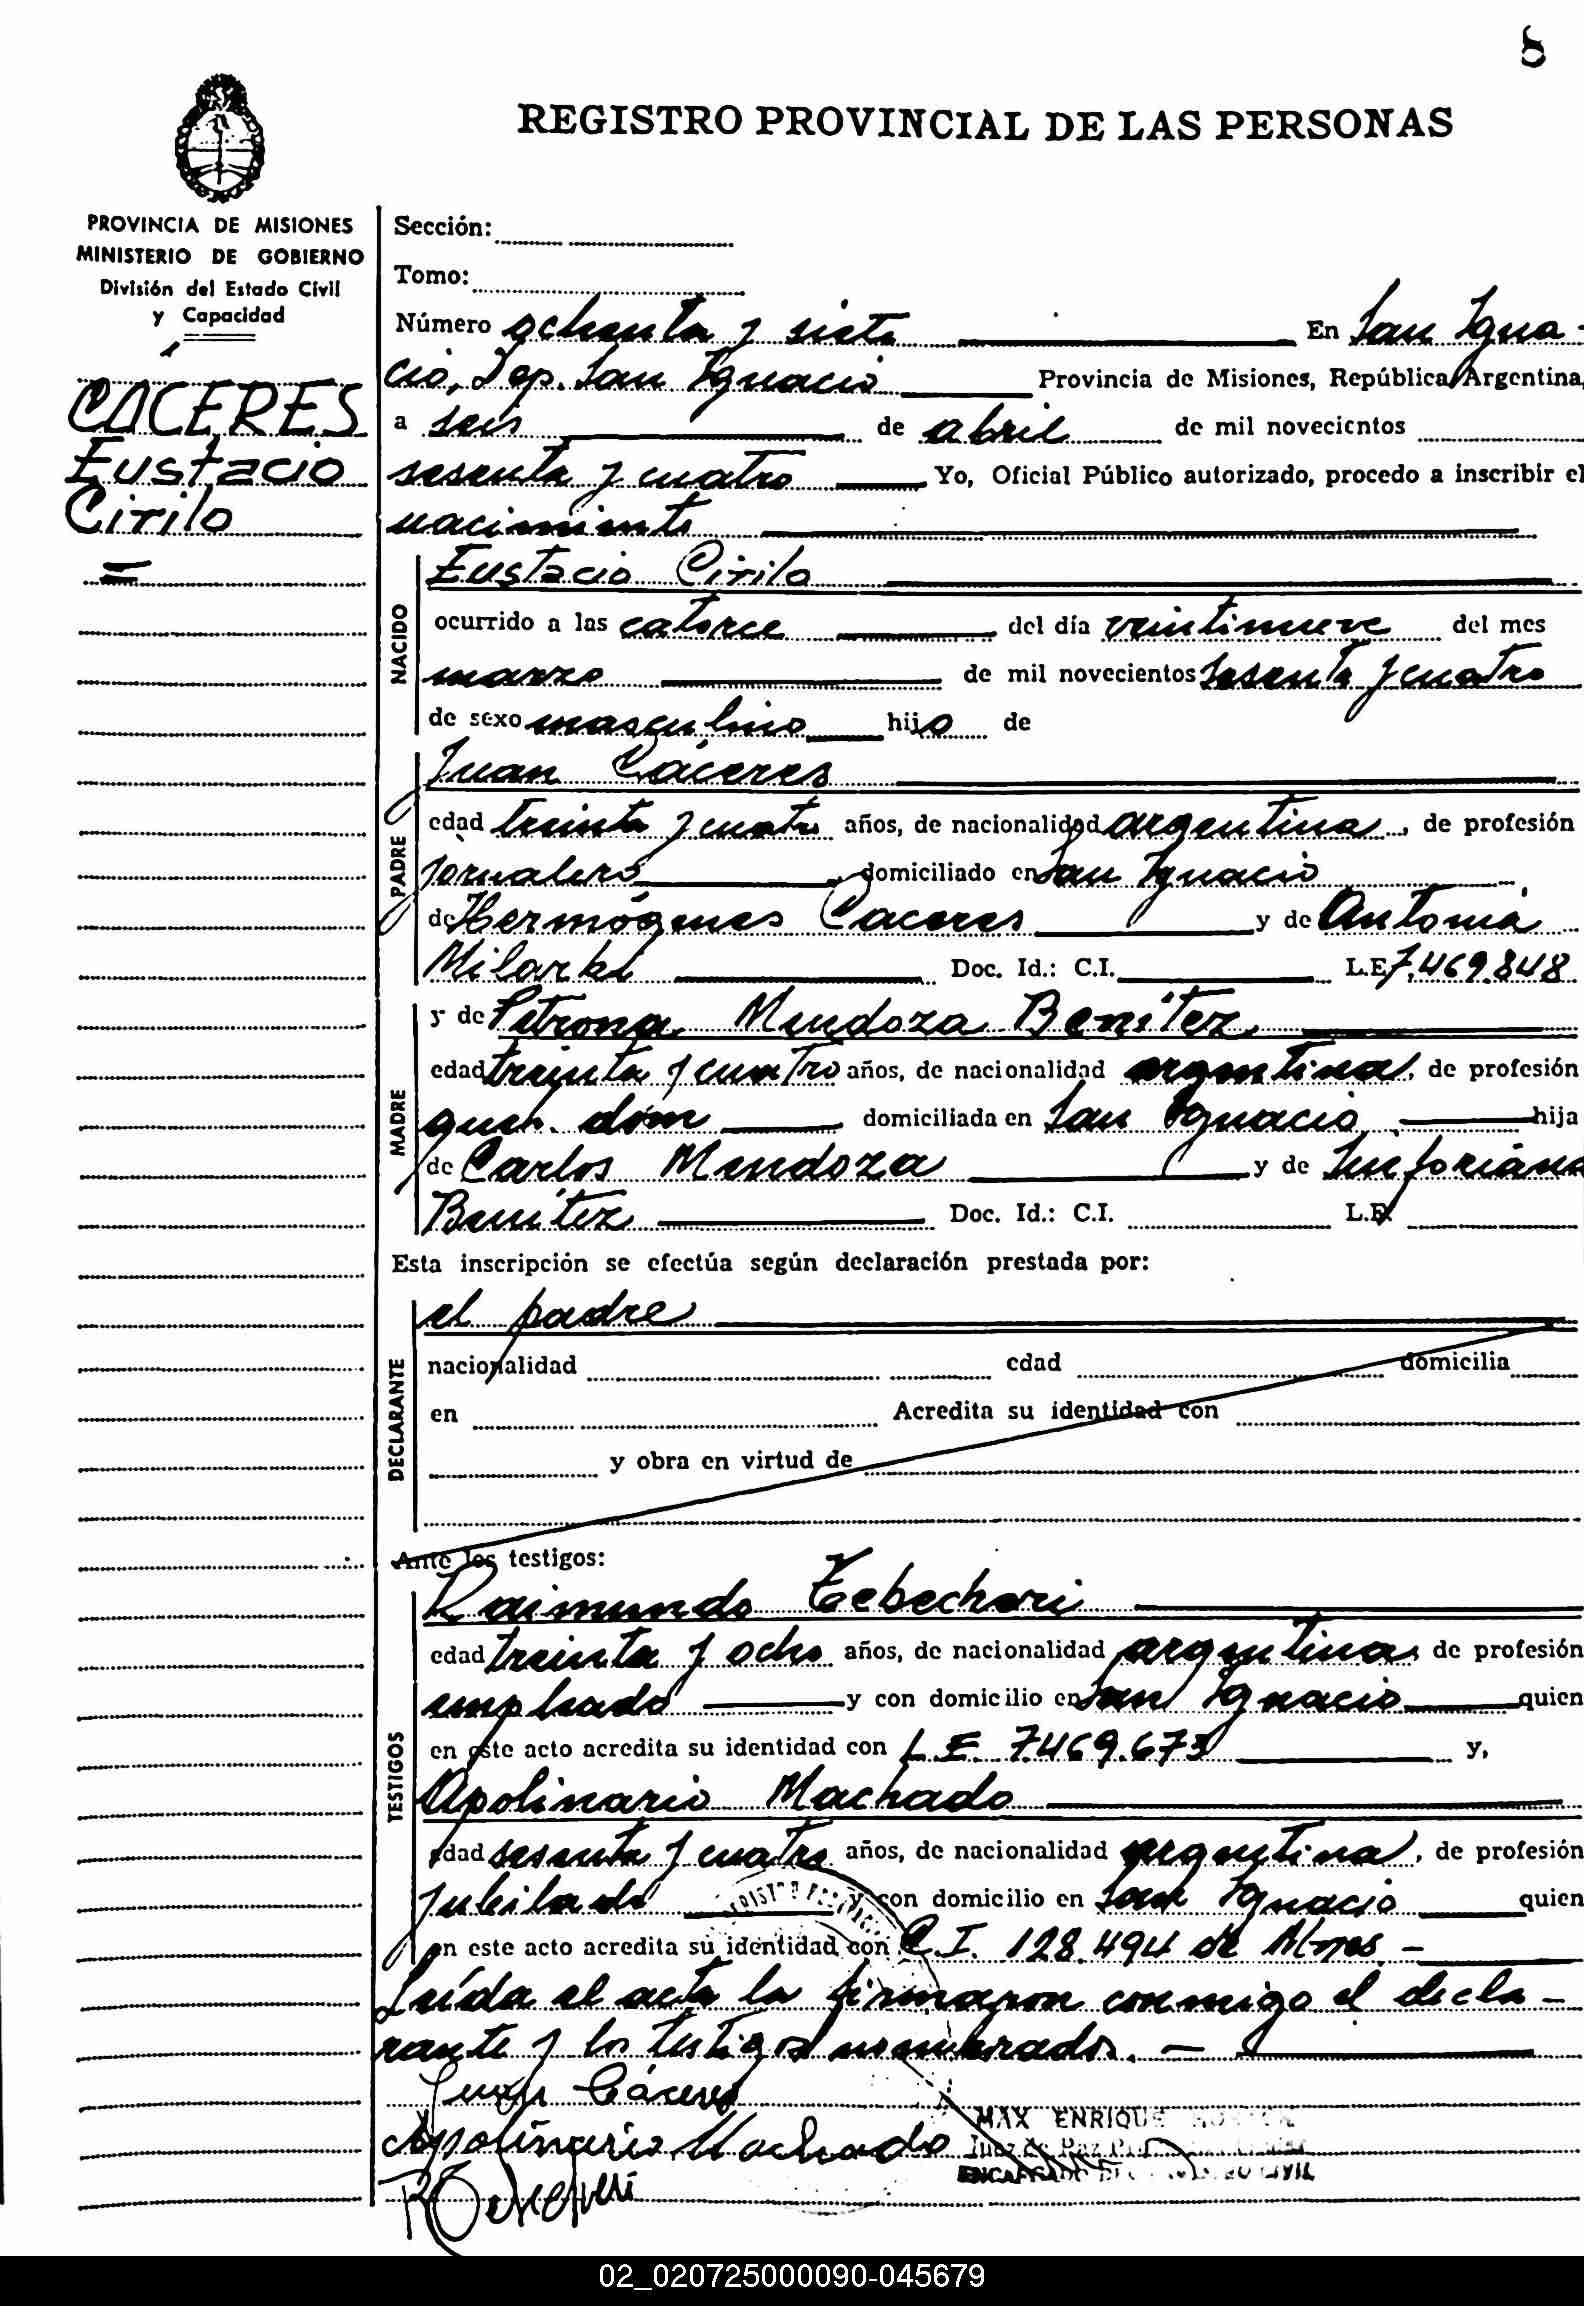 8
REGISTRO PROVINCIAL DE LAS PERSONAS
PROVINCIA DE MISIONES
MINISTERIO DE GOBIERNO
División del Estado Civil
y Capacidad
CACERES
Eustacio
Cirilo
Sección:
Tomo:
Número ochenta y siete En San Igna-
cio, Dep. San Ignacio Provincia de Misiones, República Argentina,
a seis de abril de mil novecientos
sesenta y cuatro Yo, Oficial Público autorizado, procedo a inscribir el
nacimiento
NACIDO
Eustacio Cirilo
ocurrido a las catorce del día veintinueve del mes
marzo de mil novecientos sesenta y cuatro
de sexo masculino hijo de
PADRE
Juan Cáceres
edad treinta y cuatro años, de nacionalidad argentina, de profesión
jornalero, domiciliado en San Ignacio
de Hermógenes Caceres y de Antonia
Milarki Doc. Id.: C.I. L.E. 7.469.848
MADRE
y de Petrona Mendoza Benítez
edad treinta y cuatro años, de nacionalidad argentina, de profesión
queh. dom domiciliada en San Ignacio hija
de Carlos Mendoza y de Sinforiana
Benítez Doc. Id.: C.I. L.E.
Esta inscripción se efectúa según declaración prestada por:
DECLARANTE
el padre
nacionalidad edad domicilia
en Acredita su identidad con
y obra en virtud de
Ante los testigos:
TESTIGOS
Raimundo Tebechori
edad treinta y ocho años, de nacionalidad argentina, de profesión
empleado y con domicilio en San Ignacio quien
en este acto acredita su identidad con L.E. 7.469.673 y,
Apolinario Machado
edad sesenta y cuatro años, de nacionalidad argentina, de profesión
jubilado y con domicilio en San Ignacio quien
en este acto acredita su identidad con C.I. 128.494 de Mnes -
Leída el acta la firmaron conmigo el decla-
rante y los testigos nombrados. -
Juan Cáceres
Apolinario Machado
MAX ENRIQUE
Juez de Paz
ENCARGADO DEL REGISTRO CIVIL
02_020725000090-045679